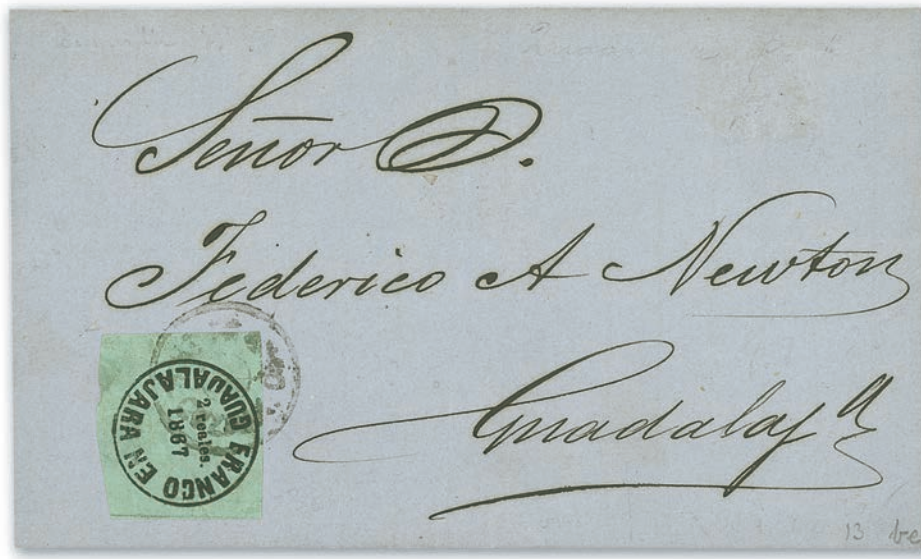 Señor D.
Federico A Newton
Guadalajª
FRANCO EN GUADALAJARA
2 reales.
1867
13